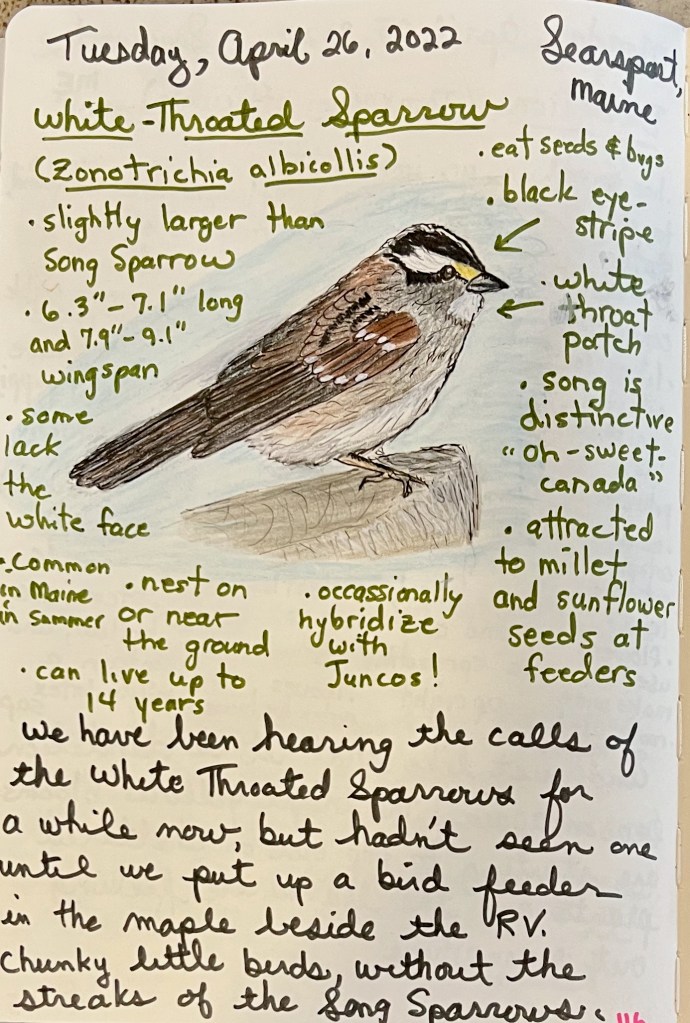 Tuesday, April 26, 2022
Searsport,
Maine
White-Throated Sparrow
(Zonotrichia albicollis)
• slightly larger than
Song Sparrow
• 6.3"- 7.1" long
and 7.9"-9.1"
wingspan
• some
lack
the
white face
• Common
in Maine
in Summer
• nest on
or near
the ground
• can live up to
14 years
• occassionally
hybridize
with
Juncos!
• eat seeds & bugs
• black eye-
stripe
• white
throat
patch
• song is
distinctive
"oh-sweet-
canada"
• attracted
to millet
and sunflower
seeds at
feeders
We have been hearing the calls of
the White Throated Sparrows for
a while now, but hadn't seen one
until we put up a bird feeder
in the maple beside the RV.
Chunky little birds, without the
streaks of the Song Sparrows.
116